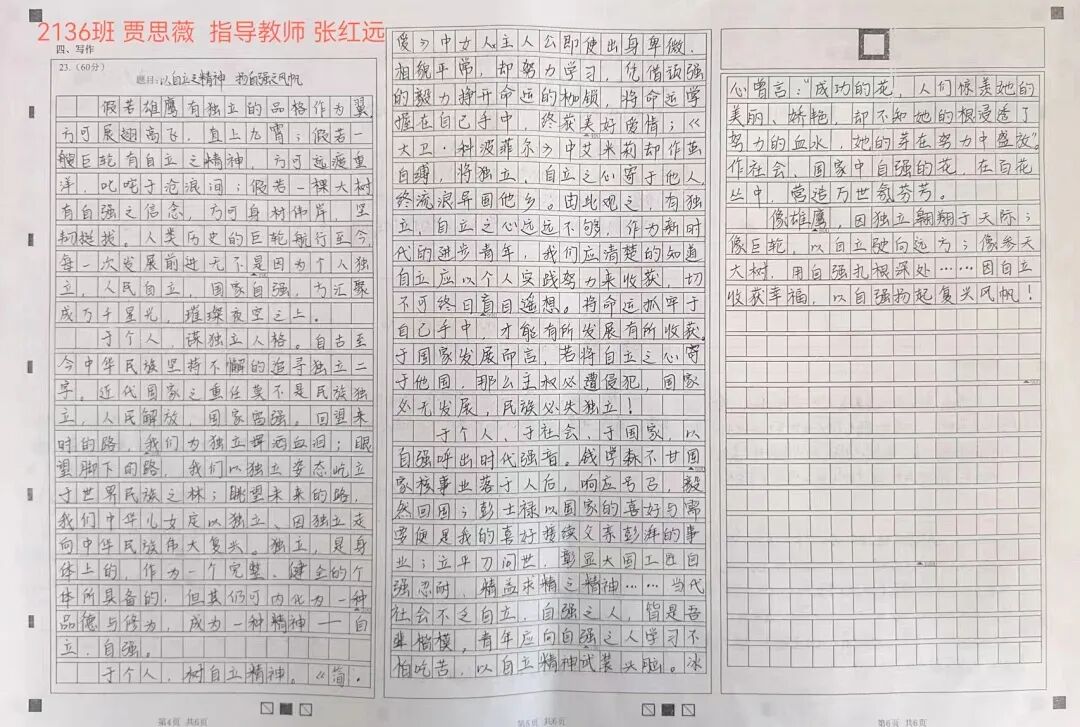 2136班 贾思薇 指导教师 张红远
四、写作
23.（60分）
题目：以自立之精神 扬自强之风帆
假若雄鹰有独立的品格作为翼，
方可展翅高飞，直上九霄；假若一
艘巨轮有自立之精神，方可远渡重
洋，叱咤于沧浪间；假若一棵大树
有自强之信念，方可身材伟岸，坚
韧挺拔。人类历史的巨轮航行至今，
每一次发展前进无不是因为个人独
立，人民自立，国家自强，方汇聚
成万千星光，璀璨夜空之上。
于个人，谋独立人格。自古至
今中华民族坚持不懈的追寻独立二
字。近代国家之重任莫不是民族独
立，人民解放，国家富强。回望来
时的路，我们为独立挥洒血泪；眼
望脚下的路，我们以独立姿态屹立
于世界民族之林；眺望未来的路，
我们中华儿女定以独立、因独立走
向中华民族伟大复兴。独立，是身
体上的，作为一个完整、健全的个
体所具备的，但其仍可内化为一种
品德与修为，成为一种精神——自
立、自强。
于个人，树自立精神。《简·
爱》中女人主人公即使出身卑微，
相貌平常，却努力学习，凭借顽强
的毅力挣开命运的枷锁，将命运掌
握在自己手中，终获美好爱情；《
大卫·科波菲尔》中艾米莉却作茧
自缚，将独立、自立之心寄于他人，
终流浪异国他乡。由此观之，有独
立、自立之心远远不够，作为新时
代的进步青年，我们应清楚的知道
自立应以个人实践努力来收获，切
不可终日盲目遥想。将命运抓牢于
自己手中，才能有所发展有所收获。
于国家发展而言，若将自立之心寄
于他国，那么主权必遭侵犯，国家
必无发展，民族必失独立！
于个人、于社会、于国家，以
自强呼出时代强音。钱学森不甘国
家核事业落于人后，响应号召，毅
然回国；彭士禄以国家的喜好与需
要便是我的喜好接续父亲彭湃的事
业；立平刀问世，彰显大国工匠自
强忍耐，精益求精之精神……当代
社会不乏自立、自强之人，皆是吾
辈楷模。青年应向自强之人学习不
怕吃苦，以自立精神武装头脑。冰
心曾言：“成功的花，人们惊羡她的
美丽、娇艳，却不知她的根浸透了
努力的血水，她的芽在努力中盛放”。
作社会、国家中自强的花，在百花
丛中，营造万世氛芬芳。
像雄鹰，因独立翱翔于天际；
像巨轮，以自立驶向远方；像参天
大树，用自强扎根深处……因自立
收获幸福，以自强扬起复兴风帆！
第4页 共6页
第5页 共6页
第6页 共6页